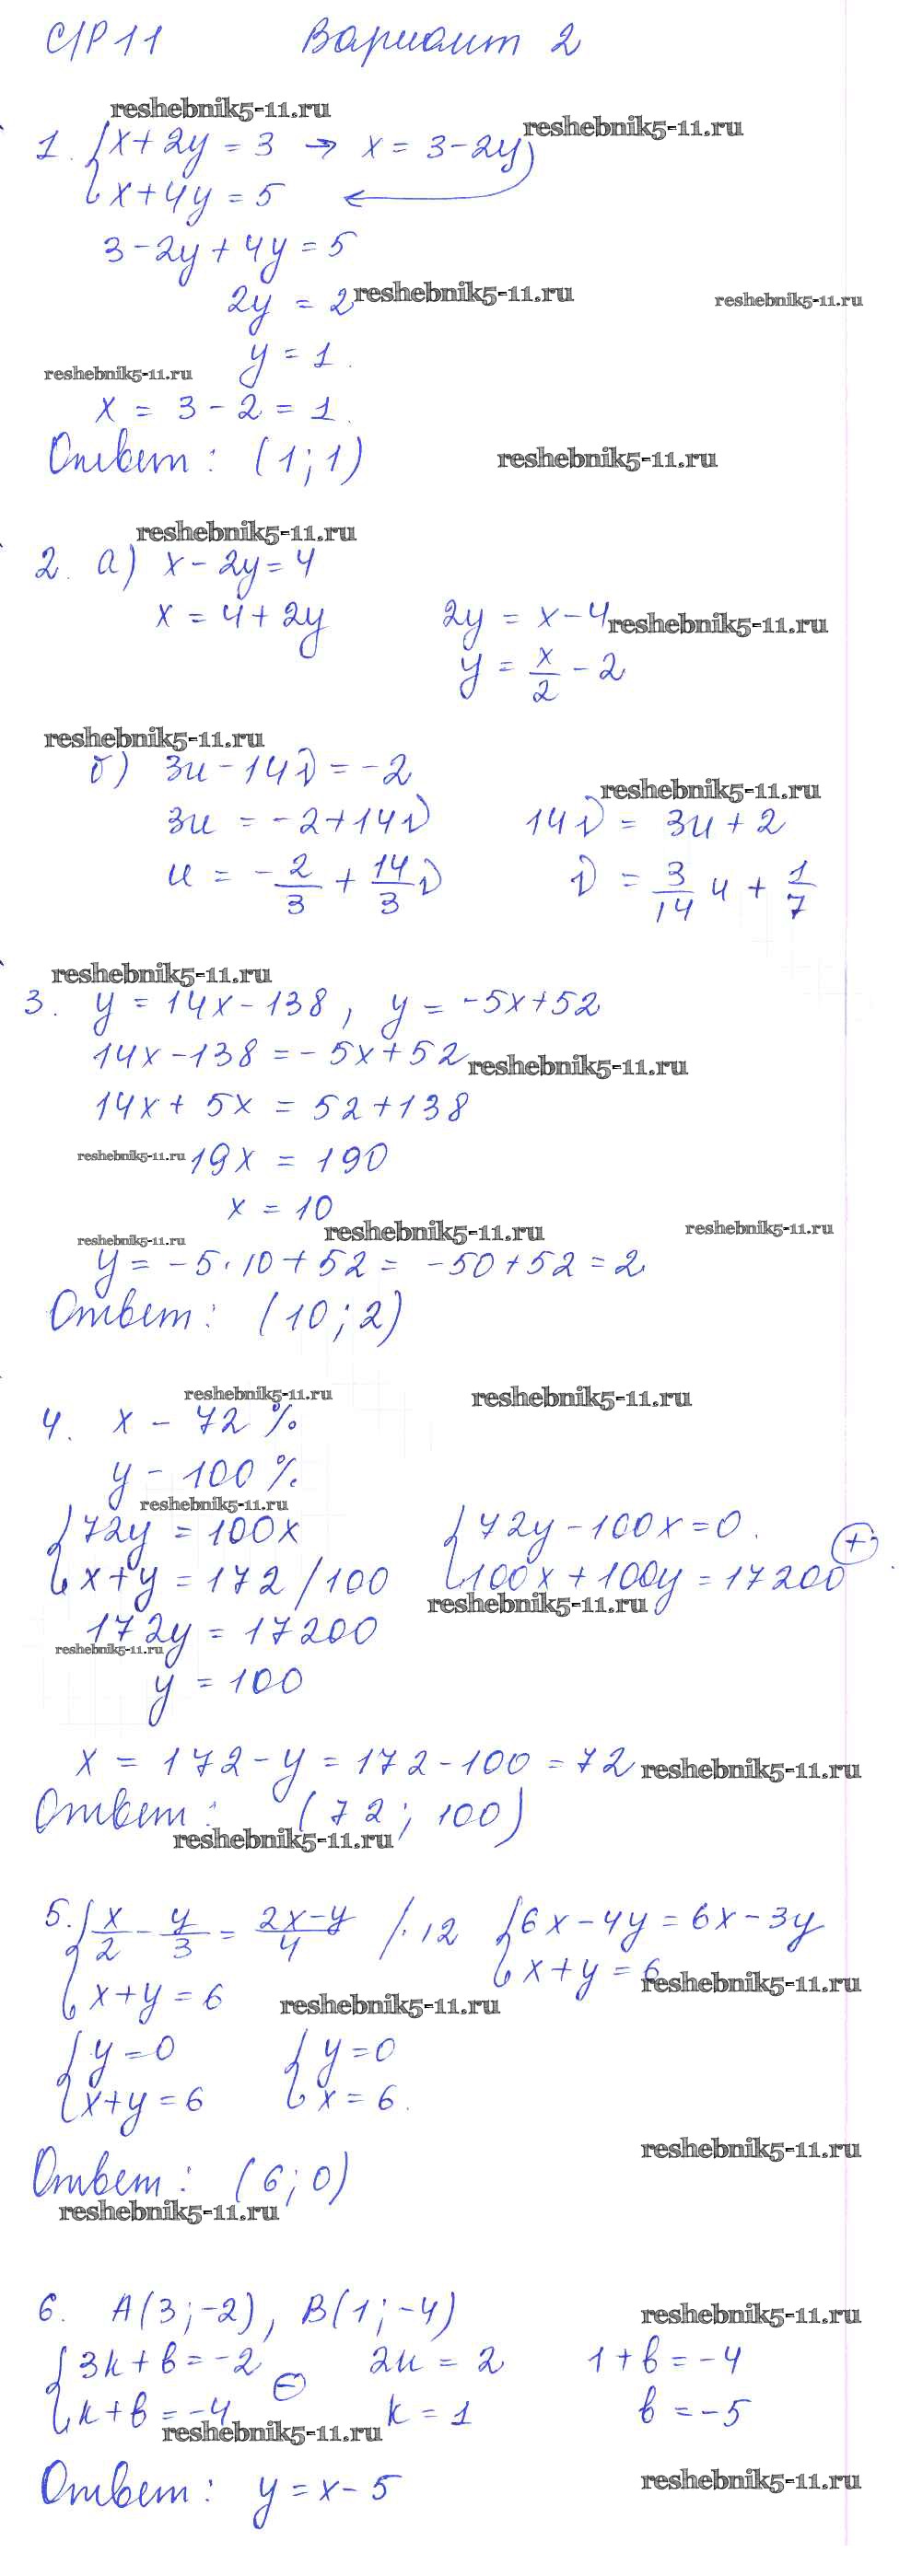 С/Р 11 Вариант 2
reshebnik5-11.ru
reshebnik5-11.ru
1. { x + 2y = 3 → x = 3 - 2y
x + 4y = 5 ←
3 - 2y + 4y = 5
2y = 2 reshebnik5-11.ru reshebnik5-11.ru
y = 1.
reshebnik5-11.ru
x = 3 - 2 = 1.
Ответ: (1; 1) reshebnik5-11.ru
reshebnik5-11.ru
2. а) x - 2y = 4
x = 4 + 2y 2y = x - 4 reshebnik5-11.ru
y = x/2 - 2
reshebnik5-11.ru
б) 3u - 14v = -2
reshebnik5-11.ru
3u = -2 + 14v 14v = 3u + 2
u = -2/3 + 14/3 v v = 3/14 u + 1/7
reshebnik5-11.ru
3. y = 14x - 138, y = -5x + 52
14x - 138 = -5x + 52 reshebnik5-11.ru
14x + 5x = 52 + 138
reshebnik5-11.ru 19x = 190
x = 10
reshebnik5-11.ru reshebnik5-11.ru reshebnik5-11.ru
y = -5·10 + 52 = -50 + 52 = 2
Ответ: (10; 2)
reshebnik5-11.ru reshebnik5-11.ru
4. x - 72 %
y - 100 %.
reshebnik5-11.ru
{ 72y = 100x { 72y - 100x = 0.
x + y = 172 / 100 100x + 100y = 17200 (+)
reshebnik5-11.ru
172y = 17200
reshebnik5-11.ru
y = 100
x = 172 - y = 172 - 100 = 72 reshebnik5-11.ru
Ответ: (72; 100)
reshebnik5-11.ru
5. { x/2 - y/3 = (2x-y)/4 /·12 { 6x - 4y = 6x - 3y
x + y = 6 x + y = 6 reshebnik5-11.ru
reshebnik5-11.ru
{ y = 0 { y = 0
x + y = 6 x = 6.
reshebnik5-11.ru
Ответ: (6; 0)
reshebnik5-11.ru
6. A(3; -2), B(1; -4) reshebnik5-11.ru
{ 3k + b = -2 2k = 2 1 + b = -4
k + b = -4 (-) k = 1 b = -5
reshebnik5-11.ru
Ответ: y = x - 5 reshebnik5-11.ru